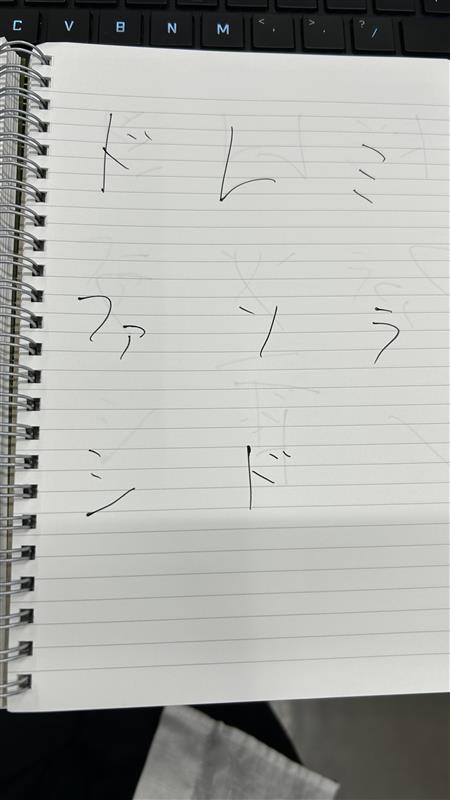 C V B N M < , > . ? /
ド レ ミ
ファ ソ ラ
シ ド